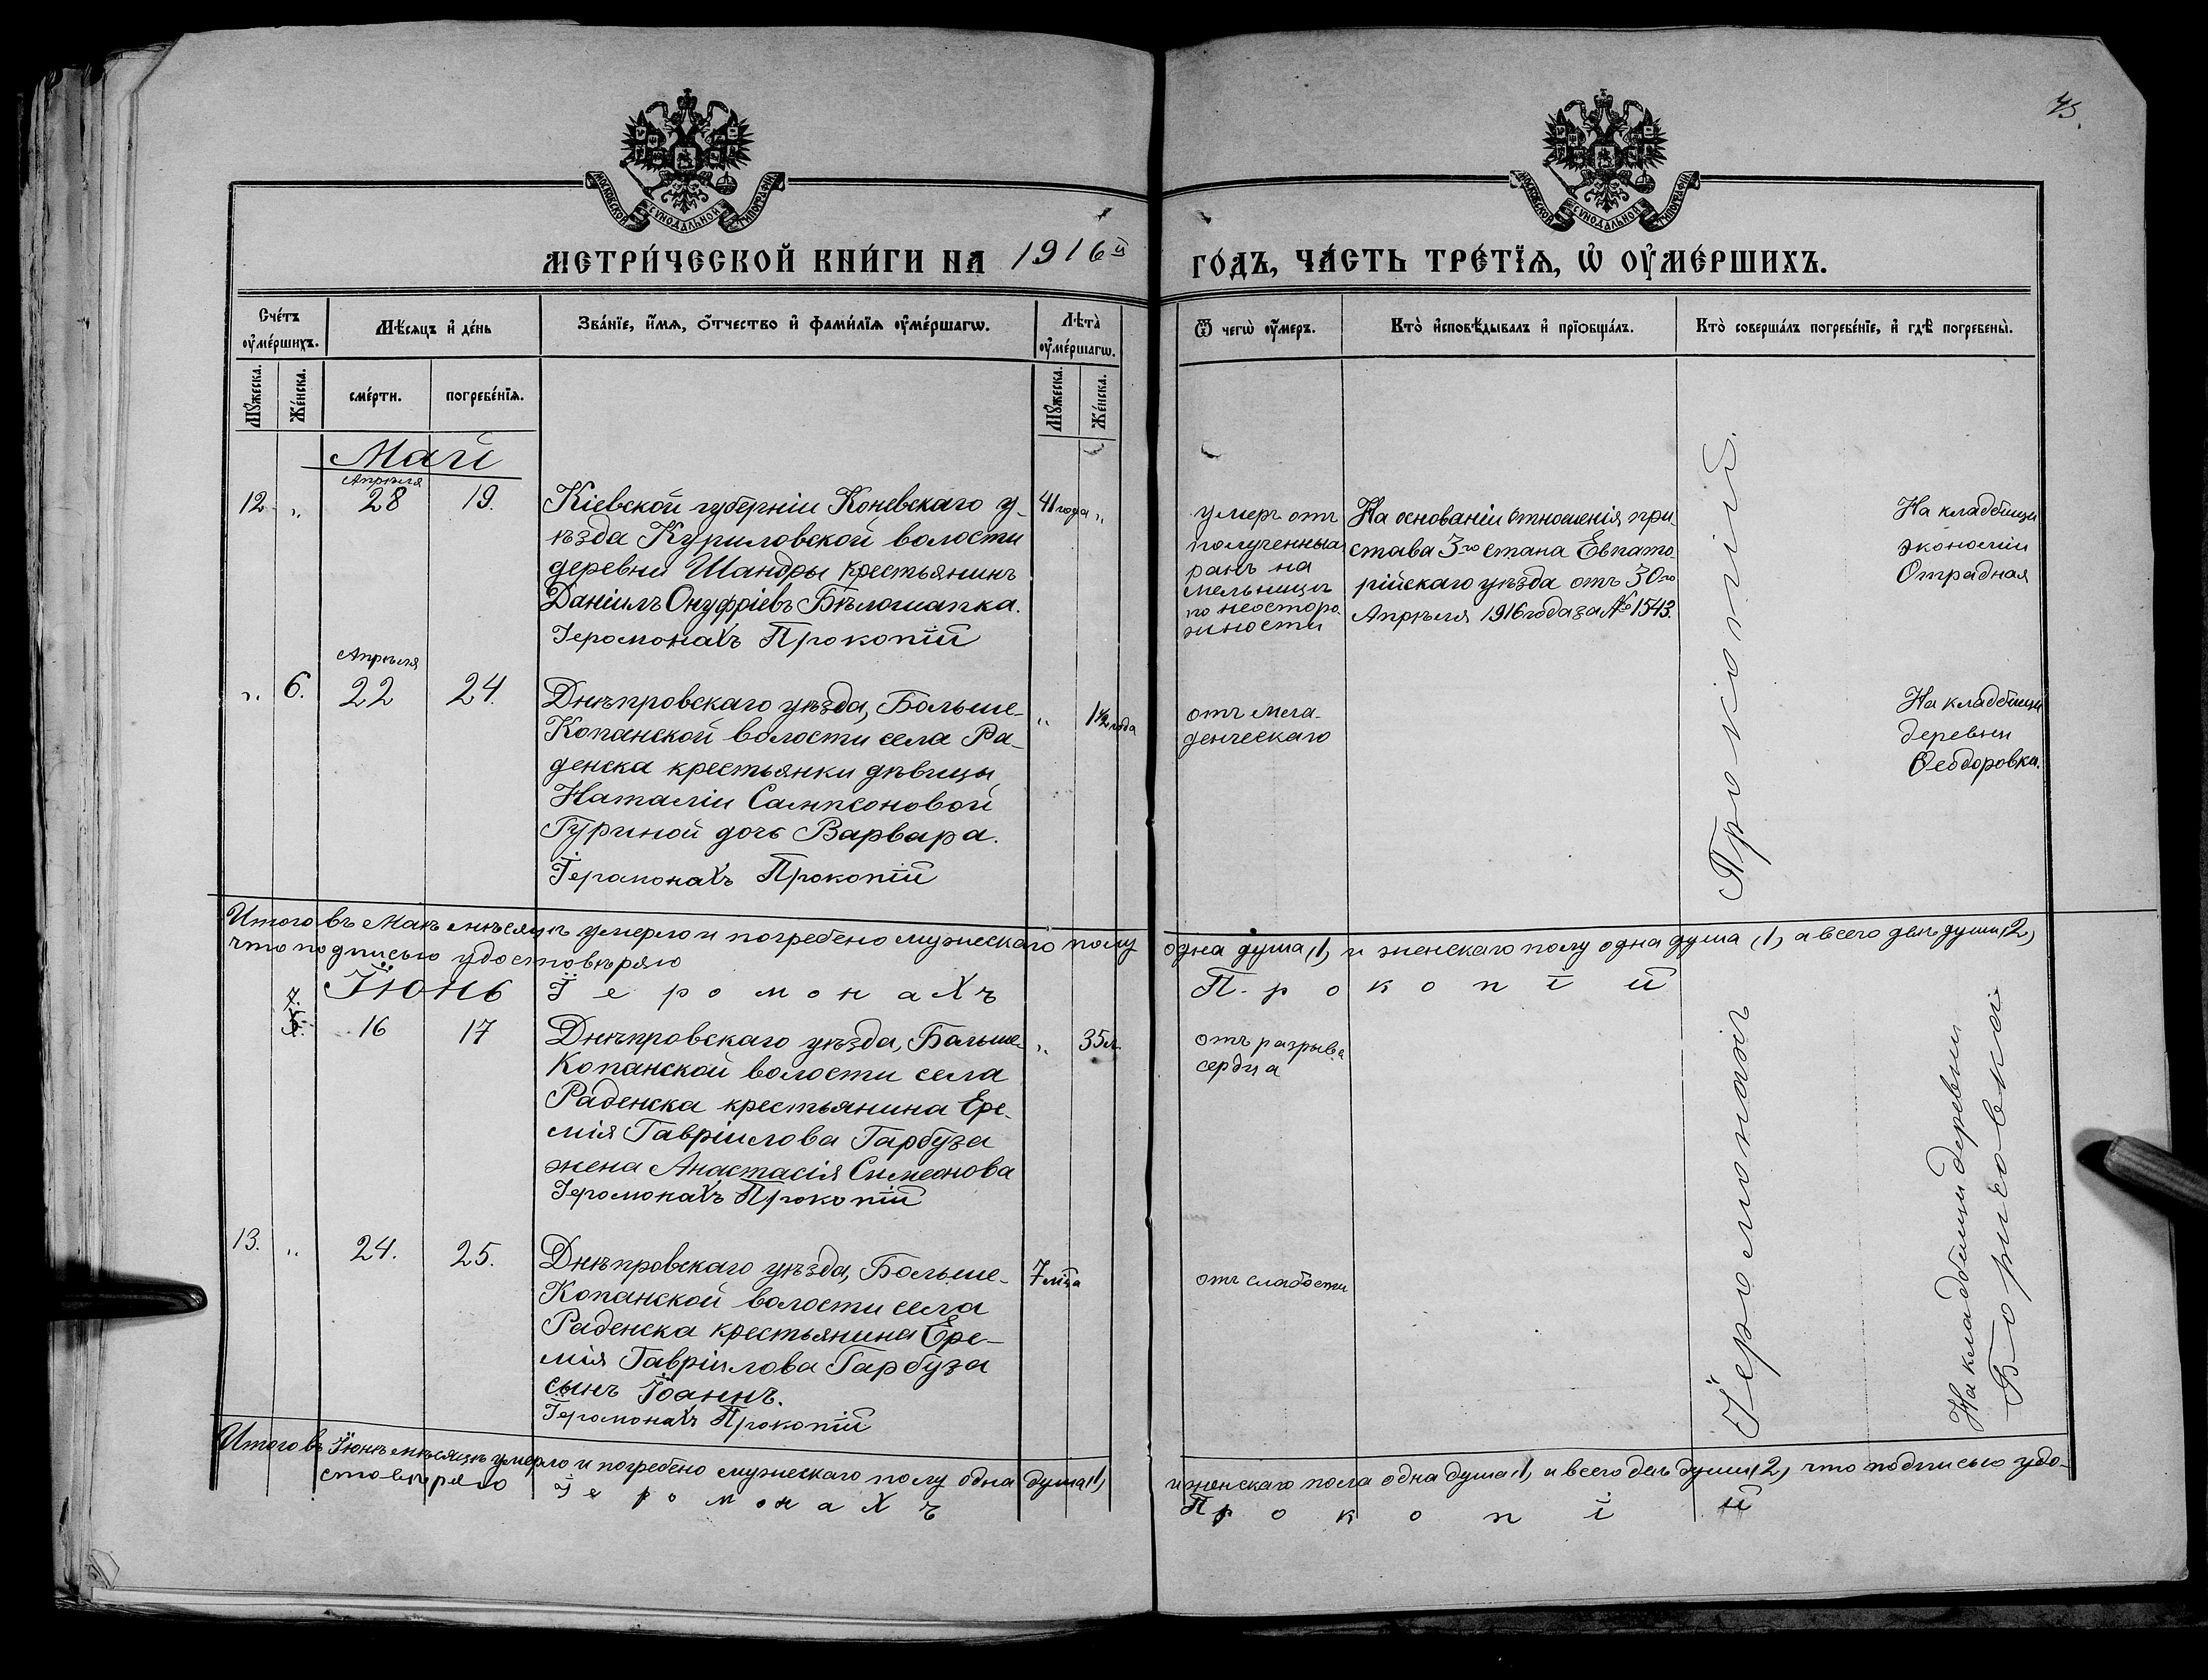 75.
МОСКОВСКОЙ СУНОДАЛЬНОЙ ТИПОГРАФІИ
МОСКОВСКОЙ СУНОДАЛЬНОЙ ТИПОГРАФІИ
МЕТРИ́ЧЕСКОЙ КНИ́ГИ НА 1916й
ГО́ДЪ, ЧА́СТЬ ТРЕ́ТЇѦ, Ѡ҆ ОУ҆МЕ́РШИХЪ.
Сче́тъ оу҆ме́ршихъ.
Мѣ́сяцъ и҆ де́нь
Зва́нїе, и҆́мѧ, ѻ҆́тчество и҆ фами́лїѧ оу҆ме́ршагѡ.
Лѣ̀та оу҆ме́ршагѡ.
Ѿ чегѡ̀ оу҆́меръ.
Кто̀ и҆сповѣ́дывалъ и҆ прїѻбща́лъ.
Кто̀ соверша́лъ погребе́нїе, и҆ гдѣ̀ погребены̀.
Мꙋ́жеска.
Же́нска.
сме́рти.
погребе́нїѧ.
Мꙋ́жеска.
Же́нска.
Май
Апрѣля
12. „ 28 19. Кіевской губерніи Коневскаго у-
ѣзда Куриловской волости
деревни Шандры крестьянинъ
Даніилъ Онуфріевъ Бѣлошапка.
Іеромонахъ Прокопій
41 года „
умеръ отъ
полученныхъ
ранъ на
мельницѣ
по неосторо-
жности
На основаніи отношенія при-
става 3го стана Евпато-
рійскаго уѣзда отъ 30го
Апрѣля 1916 года за № 1543.
На кладбищи
экономіи
Отрадная
Апрѣля
„ 6. 22 24. Днѣпровскаго уѣзда, Больше-
Копанской волости села Ра-
денска крестьянки дѣвицы
Наталіи Сампсоновой
Гуриной дочь Варвара.
Іеромонахъ Прокопій
„ 1½ года
отъ мла-
денческаго
На кладбищи
деревни
Ѳеодоровка.
Прокопій
Итого въ Маѣ мѣсяцѣ умерло и погребено мужескаго полу одна душа (1) и женскаго полу одна душа (1) а всего двѣ души (2)
что подписью удостовѣряю
Іеромонахъ Прокопій
Іюнь
7. 16 17 Днѣпровскаго уѣзда, Больше-
Копанской волости села
Раденска крестьянина Ере-
мія Гавріилова Гарбуза
жена Анастасія Симеонова
Іеромонахъ Прокопій
„ 35 л.
отъ разрыва
сердца
13. „ 24. 25. Днѣпровскаго уѣзда, Больше-
Копанской волости села
Раденска крестьянина Ере-
мія Гавріилова Гарбуза
сынъ Іоаннъ.
Іеромонахъ Прокопій
7 мца
отъ слабости
Іеромонахъ
На кладбищи деревни
Борисовка
Итого въ Іюнѣ мѣсяцѣ умерло и погребено мужескаго полу одна душа (1) и женскаго пола одна душа (1) а всего двѣ души (2) что подписью удо-
стовѣряю
Іеромонахъ Прокопій